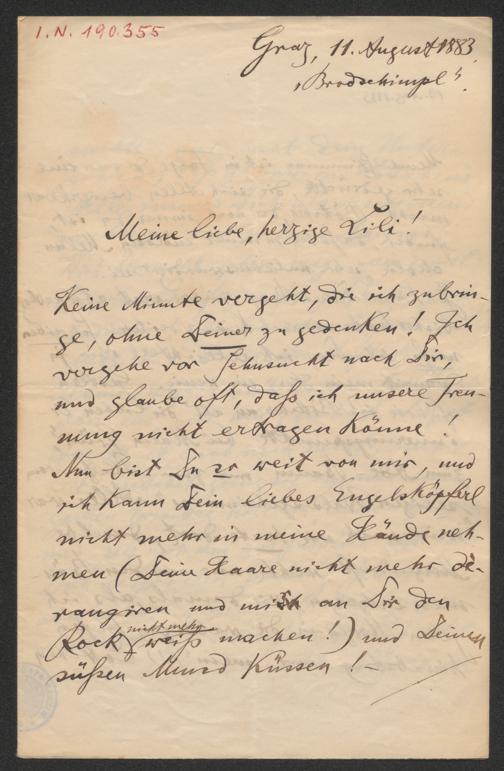 I.N. 190.355
Graz, 11. August 1883
„Brodschimpl“.
Meine liebe, herzige Lili!
Keine Minute vergeht, die ich zubrin-
ge, ohne Deiner zu gedenken! Ich
vergehe vor Sehnsucht nach Dir,
und glaube oft, daß ich unsere Tren-
nung nicht ertragen könne!
Nun bist Du so weit von mir, und
ich kann Dein liebes Engelsköpferl
nicht mehr in meine Hände neh-
men (Deine Haare nicht mehr de-
rangiren und mich an Dir den
Rock nicht mehr weiß machen!) und Deinen
süßen Mund küssen! –